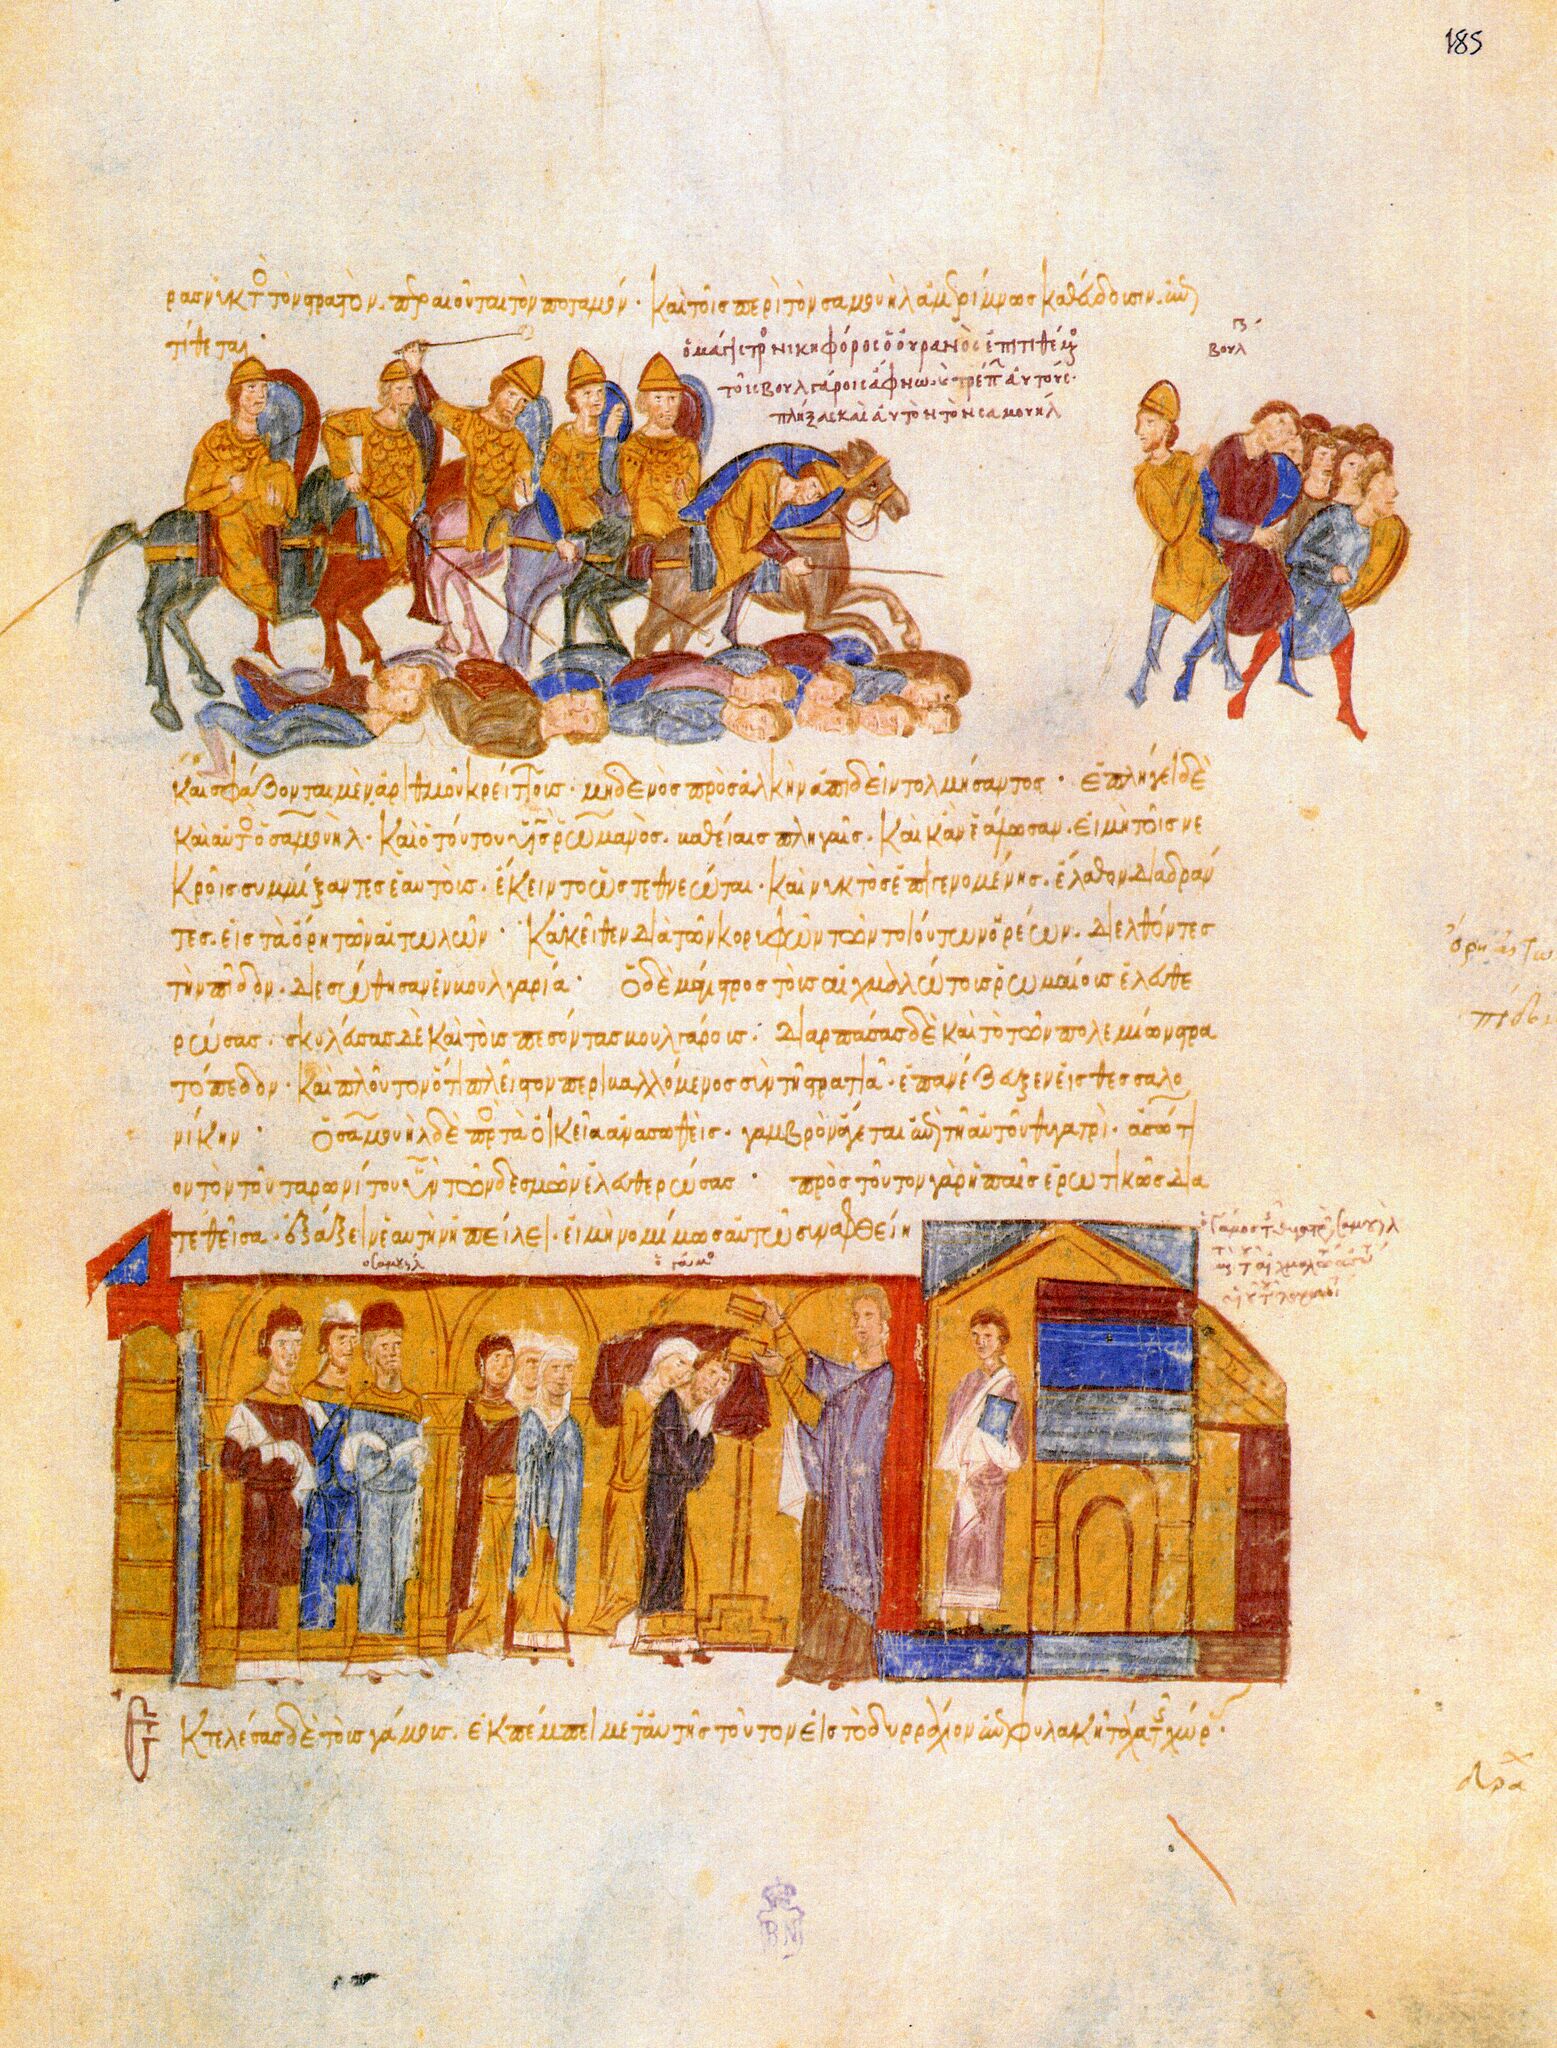 185
ρας νυκτὸς τὸν στρατὸν. περαιοῦται τὸν ποταμόν. καὶ τοῖς περὶ τὸν σαμουὴλ ἀμερίμνως καθεύδουσιν. ἐπι
τίθεται.
ὁ μάγιστρος νικηφόρος ὁ οὐρανὸς ἐπιτιθέμενος
τοῖς βουλγάροις ἄφνω. καὶ τρέπει αὐτούς.
πλήξας καὶ αὐτὸν τὸν σαμουήλ
βουλγ
καὶ σφάζονται μὲν ἀριθμοῦ κρείττους. μηδενὸς πρὸς ἀλκὴν ἀπιδεῖν τολμήσαντος. ἐπλήγει δὲ
καὶ αὐτὸς ὁ σαμουὴλ. καὶ ὁ τούτου υἱὸς ῥωμανὸς. καθείαις πληγαῖς. καὶ κἂν ἑάλωσαν. εἰ μὴ τοῖς νε
κροῖς συμμίξαντες ἑαυτοὺς. ἔκειντο ὡς τεθνεῶται. καὶ νυκτὸς ἐπιγενομένης. ἔλαθον διαδράν
τες. εἰς τὰ ὄρη τῶν αἰτωλῶν. κἀκεῖθεν διὰ τῶν κορυφῶν τῶν τοιούτων ὀρέων. διελθόντες
τὴν πίνδον. διεσώθησαν ἐν βουλγαρία. ὁ δὲ μάγιστρος τοὺς αἰχμαλώτους ῥωμαίους ἐλευθε
ρώσας. σκυλεύσας δὲ καὶ τοὺς πεσόντας βουλγάρους. διαρπάσας δὲ καὶ τὸ τῶν πολεμίων στρα
τόπεδον. καὶ πλοῦτον ὅτι πλεῖστον περιβαλλόμενος σὺν τῆ στρατιᾶ. ἐπανέζευξεν εἰς θεσσαλο
νίκην. ὁ σαμουὴλ δὲ πρὸς τὰ οἰκεῖα ἀνασωθεὶς. γαμβρὸν ἄγεται ἐπὶ τῆ αὐτοῦ θυγατρὶ. ἀσώτι
ον τὸν τοῦ ταρωνίτου υἱὸν τῶν δεσμῶν ἐλευθερώσας. πρὸς τοῦτον γὰρ ἡ παῖς ἐρωτικῶς δια
τεθεῖσα. ἐξάξειν ἑαυτὴν ἠπείλει. εἰ μὴ νομίμως αὐτῶ συναφθείη
ὁ σαμουήλ
ὁ γάμος
ὁ γάμος τῆς θυγατρὸς σαμουὴλ
ἐκτελέσας δὲ τοὺς γάμους. ἐκπέμπει μετ᾽ αὐτῆς τοῦτον εἰς τὸ δυρράχιον ἐπὶ φυλακῆ τῆς χώρας.
BN